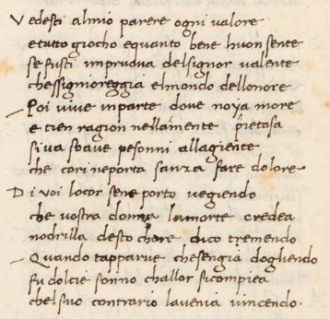 Vedesti almio parere ogni valore
etutto giocho equanto bene huon sente
se fusti imprudua delsignor valente
chessignioreggia elmondo dellonore
Poi vive inparte dove noya more
e tien ragion nellamente pietosa
si va soave pesonni allagiente
che cori neporta sanza fare dolore
Di voi locor sene porto vegiendo
che vostra donna lamorte credea
nodrilla desto chore dico tremendo
Quando tapparve chesengia dogliendo
fu dolcie sonno challor sicompiea
chelsuo contrario lavenia vincendo.